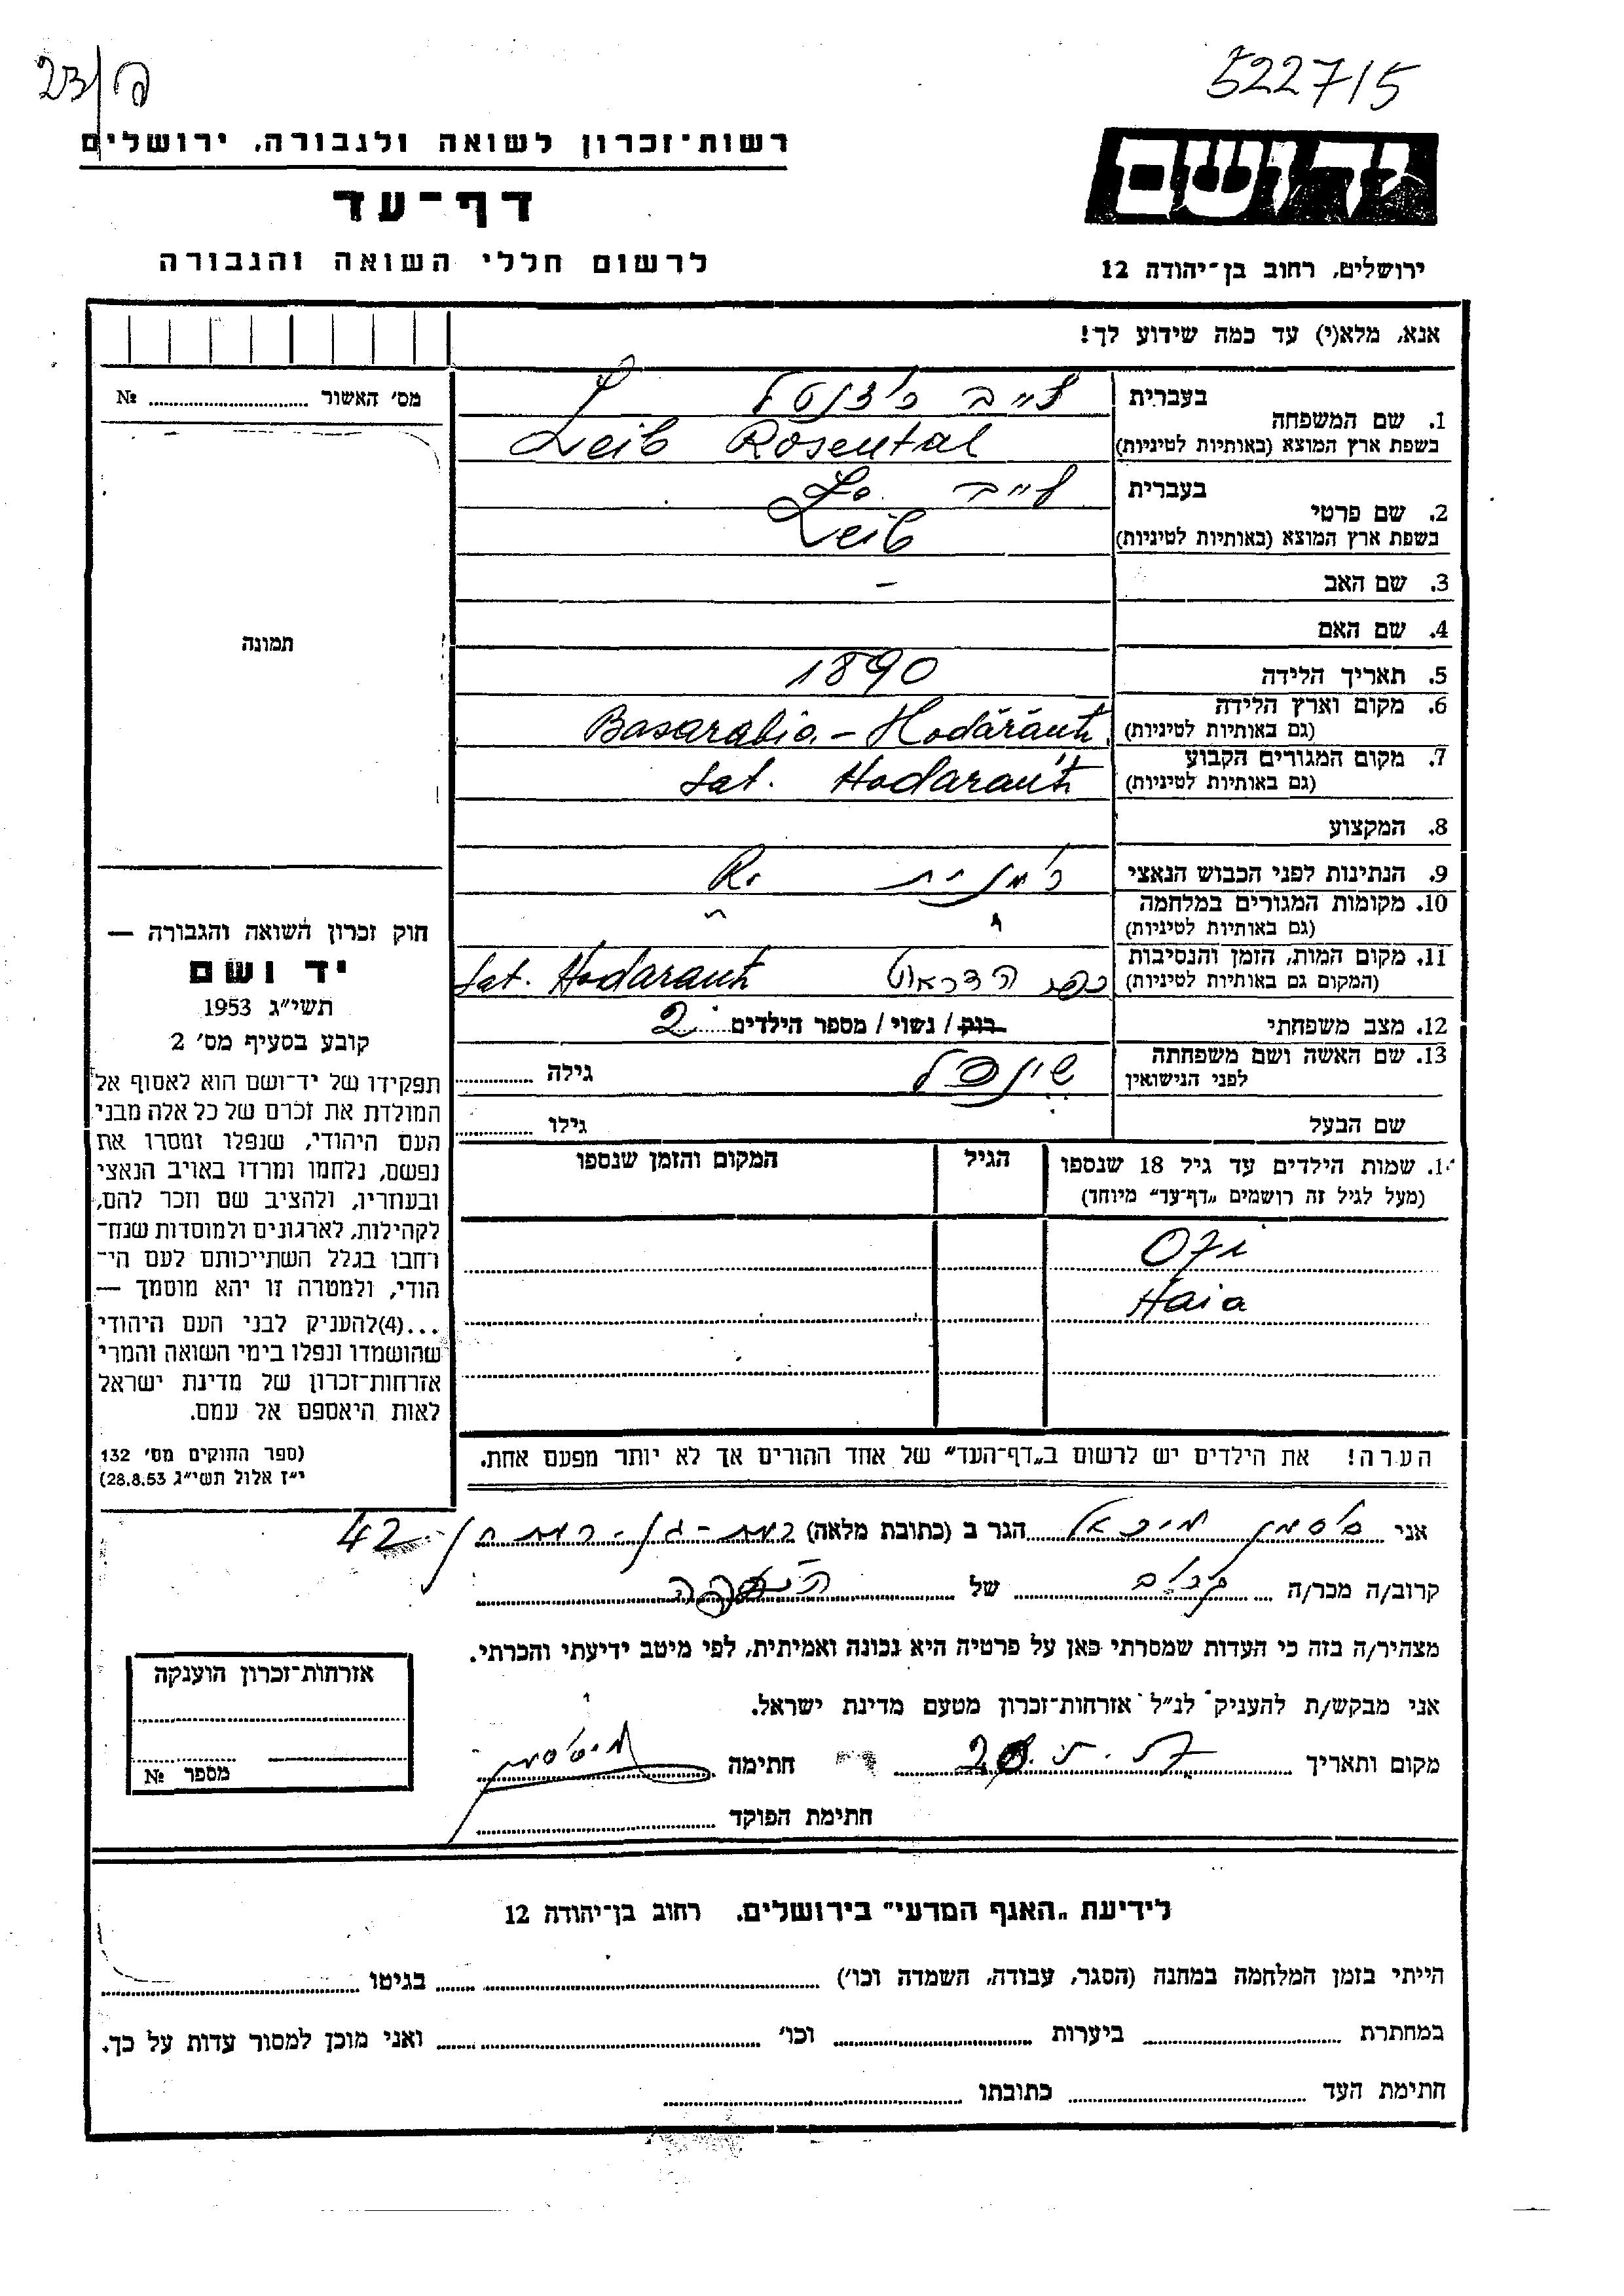 23/ק
522715
רשות־זכרון לשואה ולגבורה, ירושלים
דף־עד
לרשום חללי השואה והגבורה
יד ושם
ירושלים, רחוב בן־יהודה 12
אנא, מלא(י) עד כמה שידוע לך!
מס׳ האשור ........ №
תמונה
חוק זכרון השואה והגבורה —
יד ושם
תשי״ג 1953
קובע בסעיף מס׳ 2
תפקידו של יד־ושם הוא לאסוף אל
המולדת את זכרם של כל אלה מבני
העם היהודי, שנפלו ומסרו את
נפשם, נלחמו ומרדו באויב הנאצי
ובעוזריו, ולהציב שם וזכר להם,
לקהילות, לארגונים ולמוסדות שנח־
רחבו בגלל השתייכותם לעם הי־
הודי, ולמטרה זו יהא מוסמך —
...(4)להעניק לבני העם היהודי
שהושמדו ונפלו בימי השואה והמרי
אזרחות־זכרון של מדינת ישראל
לאות היאספם אל עמם.
(ספר החוקים מס׳ 132
י״ז אלול תשי״ג 28.8.53)
1. שם המשפחה
בעברית לייב רוזנטל
בשפת ארץ המוצא (באותיות לטיניות) Leib Rosental
2. שם פרטי
בעברית לייב
בשפת ארץ המוצא (באותיות לטיניות) Leib
3. שם האב –
4. שם האם
5. תאריך הלידה 1890
6. מקום וארץ הלידה
(גם באותיות לטיניות) Basarabia - Hodăráuti
7. מקום המגורים הקבוע
(גם באותיות לטיניות) Sat. Hodarauti
8. המקצוע
9. הנתינות לפני הכבוש הנאצי רומנית R.
10. מקומות המגורים במלחמה
(גם באותיות לטיניות)
11. מקום המות, הזמן והנסיבות
(המקום גם באותיות לטיניות) כפר Sat. Hodarauti
12. מצב משפחתי רווק / נשוי / מספר הילדים 2
13. שם האשה ושם משפחתה
לפני הנישואין שינדל גילה
שם הבעל גילו
14. שמות הילדים עד גיל 18 שנספו
(מעל לגיל זה רושמים „דף־עד״ מיוחד)
הגיל
המקום והזמן שנספו
Ozi
Haia
הערה! את הילדים יש לרשום ב„דף־העד״ של אחד ההורים אך לא יותר מפעם אחת.
אני מיכאל הגר ב (כתובת מלאה) רמת-גן 42
קרוב/ה מכר/ה קרוב של
מצהיר/ה בזה כי העדות שמסרתי כאן על פרטיה היא נכונה ואמיתית, לפי מיטב ידיעתי והכרתי.
אני מבקש/ת להעניק לנ״ל אזרחות־זכרון מטעם מדינת ישראל.
מקום ותאריך חתימה
חתימת הפוקד
אזרחות־זכרון הוענקה
מספר №
לידיעת „האגף המדעי״ בירושלים, רחוב בן־יהודה 12
הייתי בזמן המלחמה במחנה (הסגר, עבודה, השמדה וכו׳) בגיטו
במחתרת ביערות וכו׳ ואני מוכן למסור עדות על כך.
חתימת העד כתובתו